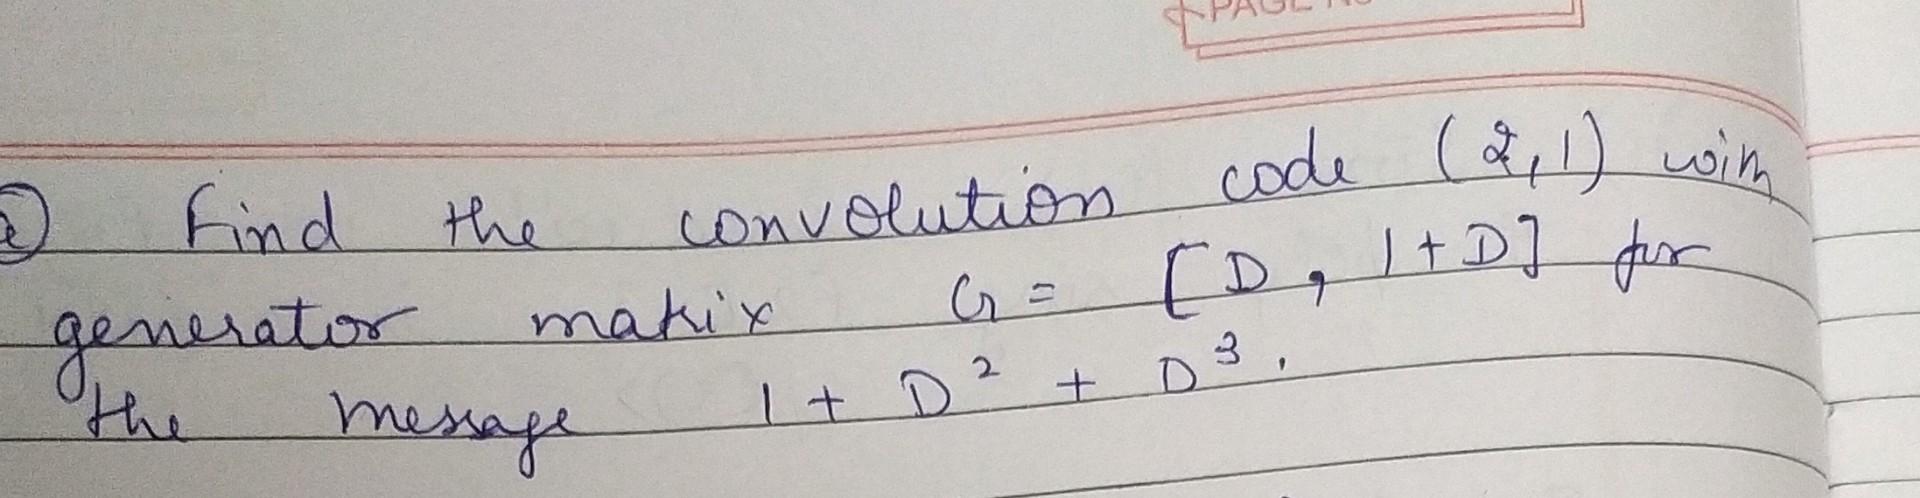 PAGE NO
② Find the convolution code (2,1) with
generator matrix G = [D, 1+D] for
the message 1 + D² + D³.